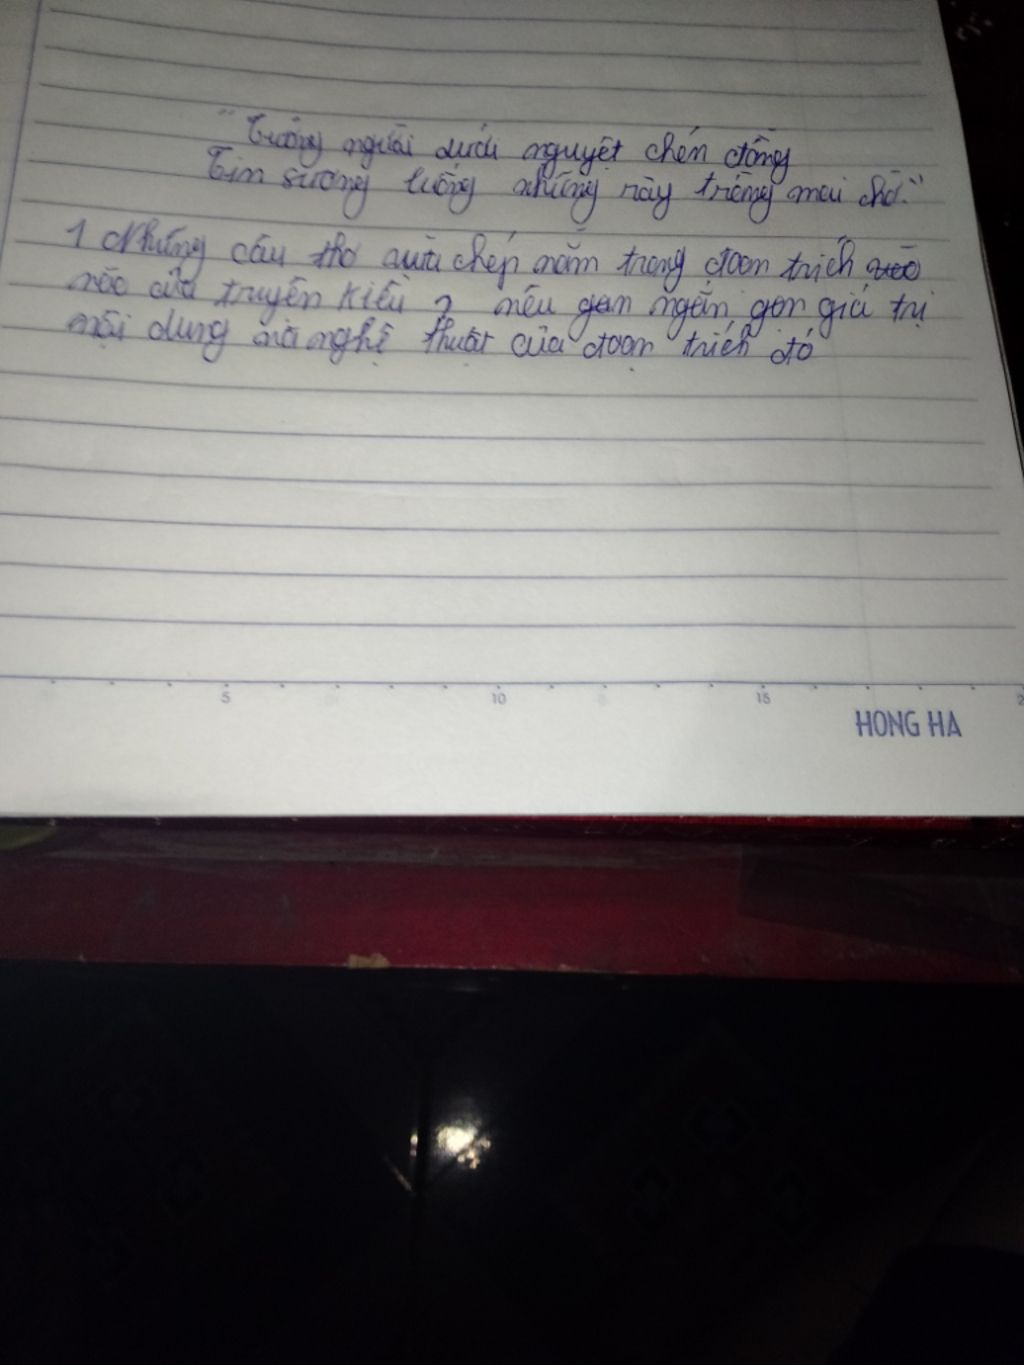 "Tưởng người dưới nguyệt chén đồng
Tin sương luống những rày trông mai chờ."
1 Những câu thơ vừa chép nằm trong đoạn trích nào
nào của truyện Kiều ? nêu gọn ngắn gọn giá trị
nội dung và nghệ thuật của đoạn trích đó
5 10 15 2
HONG HA